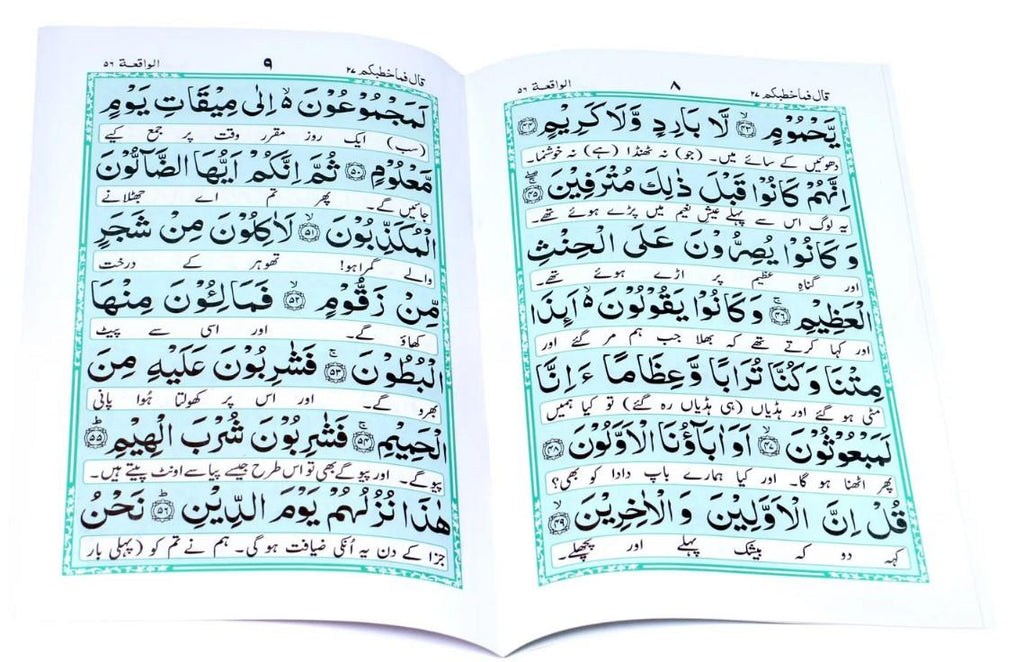 قال فماخطبكم ٢٧ ٨ الواقعة ٥٦
يَّحْمُوْمٍ ﴿٤٣﴾ۙ لَّا بَارِدٍ وَّلَا كَرِيْمٍ ﴿٤٤﴾
دھوئیں کے سائے میں۔ (جو) نہ ٹھنڈا (ہے) نہ خوشنما۔
اِنَّهُمْ كَانُوْا قَبْلَ ذٰلِكَ مُتْرَفِيْنَ ﴿٤٥﴾
یہ لوگ اس سے پہلے عیش نعیم میں پڑے ہوئے تھے۔
وَ كَانُوْا يُصِرُّوْنَ عَلَى الْحِنْثِ
اور گناہ عظیم پر اڑے ہوئے تھے۔
الْعَظِيْمِ ﴿٤٦﴾ۚ وَ كَانُوْا يَقُوْلُوْنَ ەۙ اَىِٕذَا
اور کہا کرتے تھے کہ بھلا جب ہم مر گئے اور
مِتْنَا وَ كُنَّا تُرَابًا وَّ عِظَامًا ءَاِنَّا
مٹی ہو گئے اور ہڈیاں (ہی ہڈیاں رہ گئے) تو کیا ہمیں
لَمَبْعُوْثُوْنَ ﴿٤٧﴾ۙ اَوَ اٰبَآؤُنَا الْاَوَّلُوْنَ ﴿٤٨﴾
پھر اٹھنا ہو گا۔ اور کیا ہمارے باپ دادا کو بھی؟
قُلْ اِنَّ الْاَوَّلِيْنَ وَ الْاٰخِرِيْنَ ﴿٤٩﴾ۙ
کہہ دو کہ بیشک پہلے اور پچھلے۔
قال فماخطبكم ٢٧ ٩ الواقعة ٥٦
لَمَجْمُوْعُوْنَ ەۙ اِلٰى مِيْقَاتِ يَوْمٍ
(سب) ایک روز مقرر وقت پر جمع کیے
مَّعْلُوْمٍ ﴿٥٠﴾ ثُمَّ اِنَّكُمْ اَيُّهَا الضَّآلُّوْنَ
جائیں گے۔ پھر تم اے جھٹلانے
الْمُكَذِّبُوْنَ ﴿٥١﴾ۙ لَاٰكِلُوْنَ مِنْ شَجَرٍ
والے گمراہو! تھوہر کے درخت
مِّنْ زَقُّوْمٍ ﴿٥٢﴾ۙ فَمَالِـُٔوْنَ مِنْهَا
کھاؤ گے۔ اور اسی سے پیٹ
الْبُطُوْنَ ﴿٥٣﴾ۚ فَشٰرِبُوْنَ عَلَيْهِ مِنَ
بھرو گے۔ اور اس پر کھولتا ہُوا پانی
الْحَمِيْمِ ﴿٥٤﴾ۚ فَشٰرِبُوْنَ شُرْبَ الْهِيْمِ ﴿٥٥﴾ؕ
پیو گے۔ اور پیو گے بھی تو اس طرح جیسے پیاسے اونٹ پیتے ہیں۔
هٰذَا نُزُلُهُمْ يَوْمَ الدِّيْنِ ﴿٥٦﴾ؕ نَحْنُ
جزا کے دن یہ اُنکی ضیافت ہو گی۔ ہم نے تم کو (پہلی بار